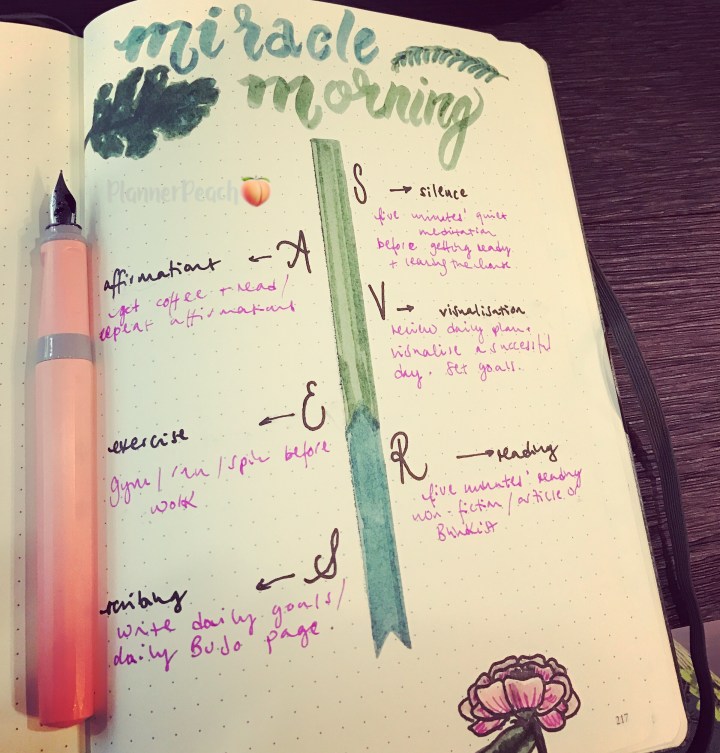 miracle
morning
PlannerPeach
S → silence
five minutes' quiet
meditation
before getting ready
+ leaving the house
A
affirmations
get coffee + read/
repeat affirmations
V → visualisation
review daily plan.
visualise a successful
day. Set goals.
E
exercise
gym/run/spin before
work
R → reading
five minutes' reading
non-fiction/article or
Blinkist
S
scribing
write daily goals/
daily BuJo page
217